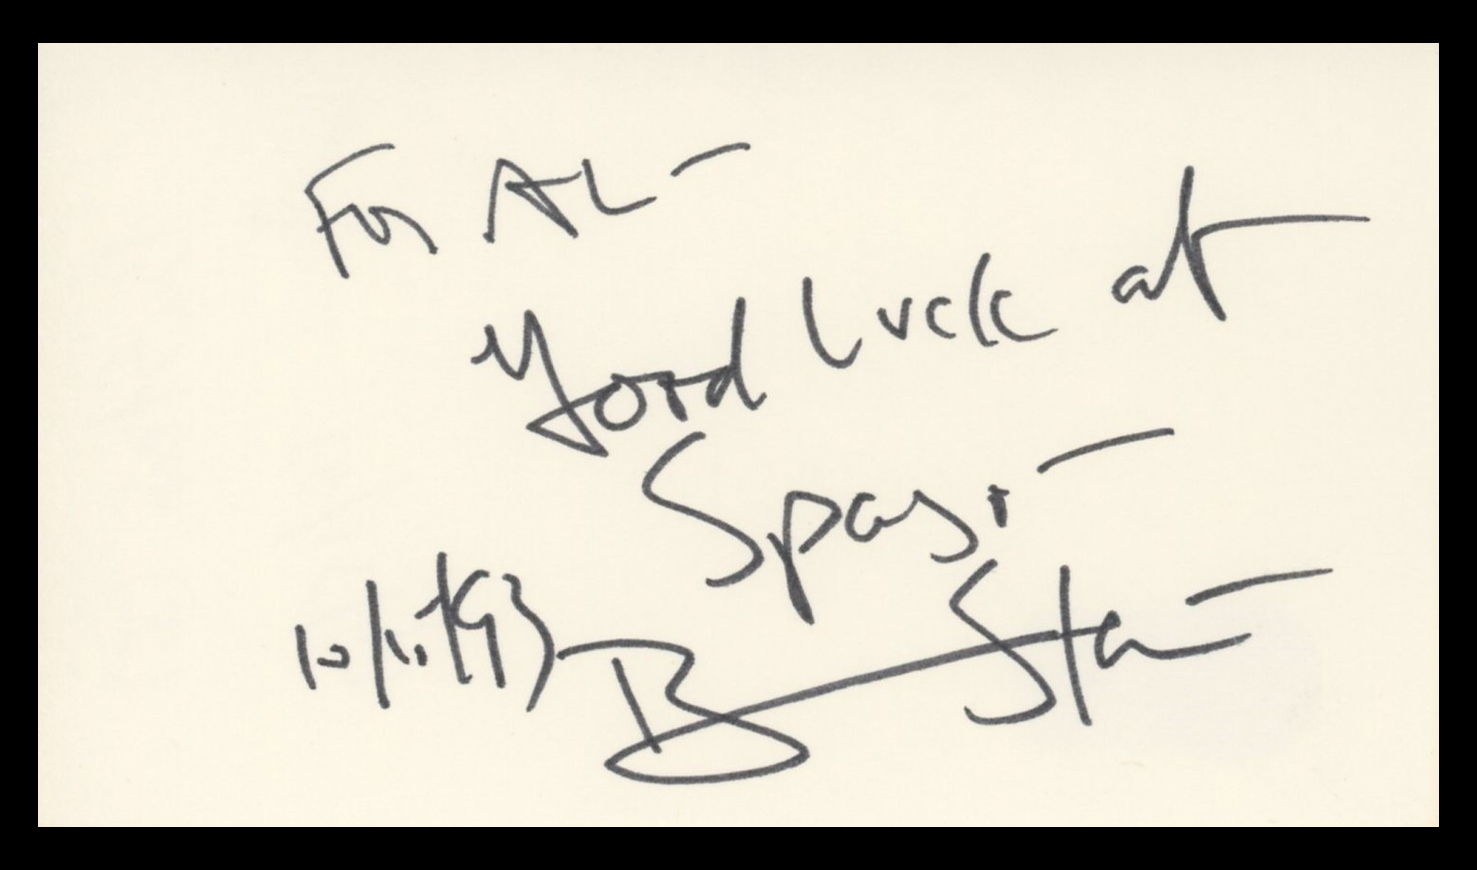 For AL —
Good luck at
Spago —
10/11/93 B Sta —